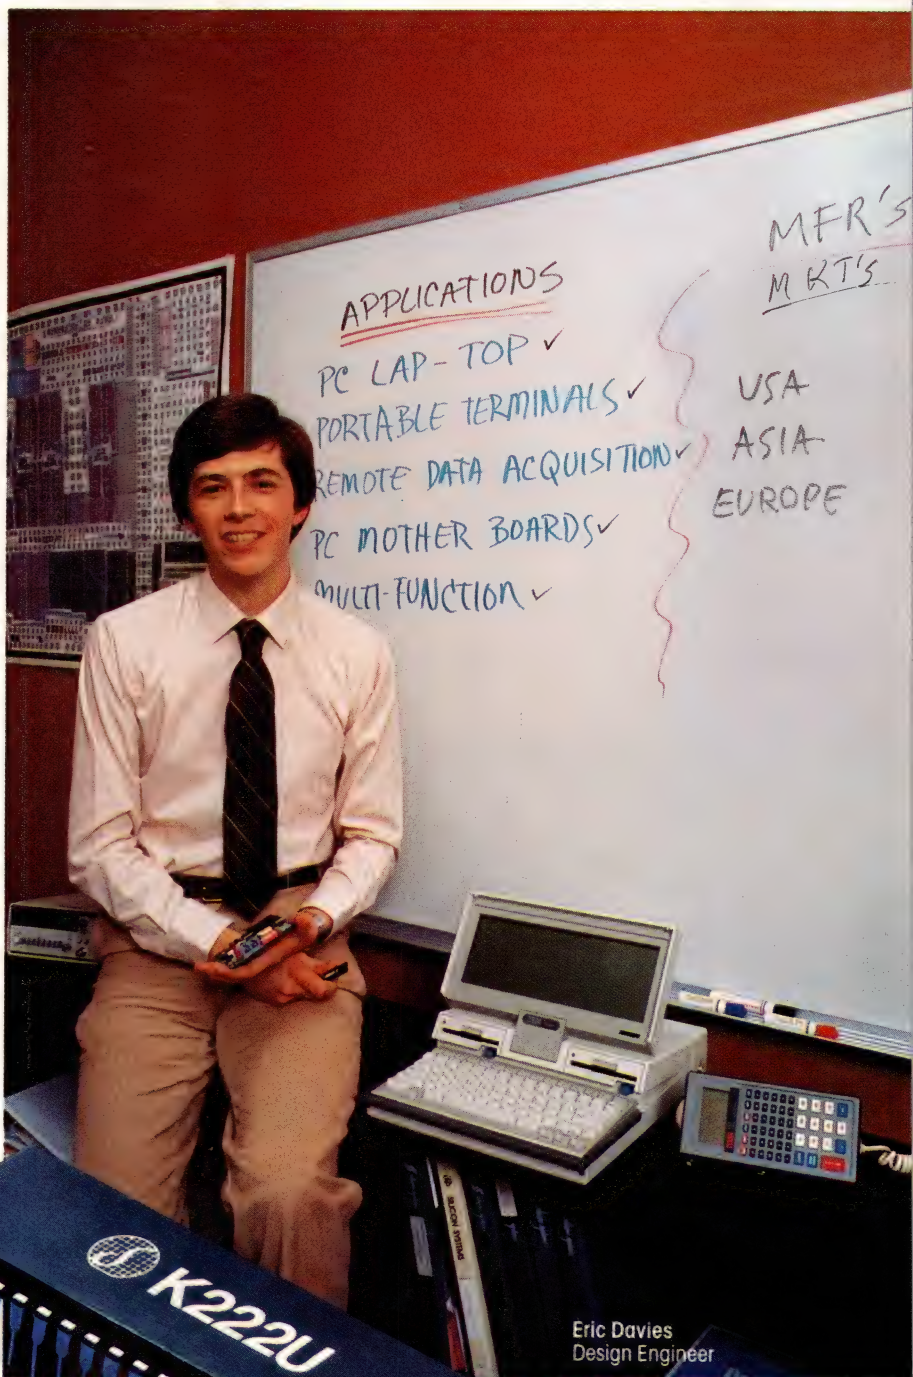 MFR'S
MKT'S
APPLICATIONS
PC LAP-TOP ✓
PORTABLE TERMINALS ✓
REMOTE DATA ACQUISITION ✓
PC MOTHER BOARDS ✓
MULTI-FUNCTION ✓
USA
ASIA
EUROPE
SILICON SYSTEMS
K222U
Eric Davies
Design Engineer